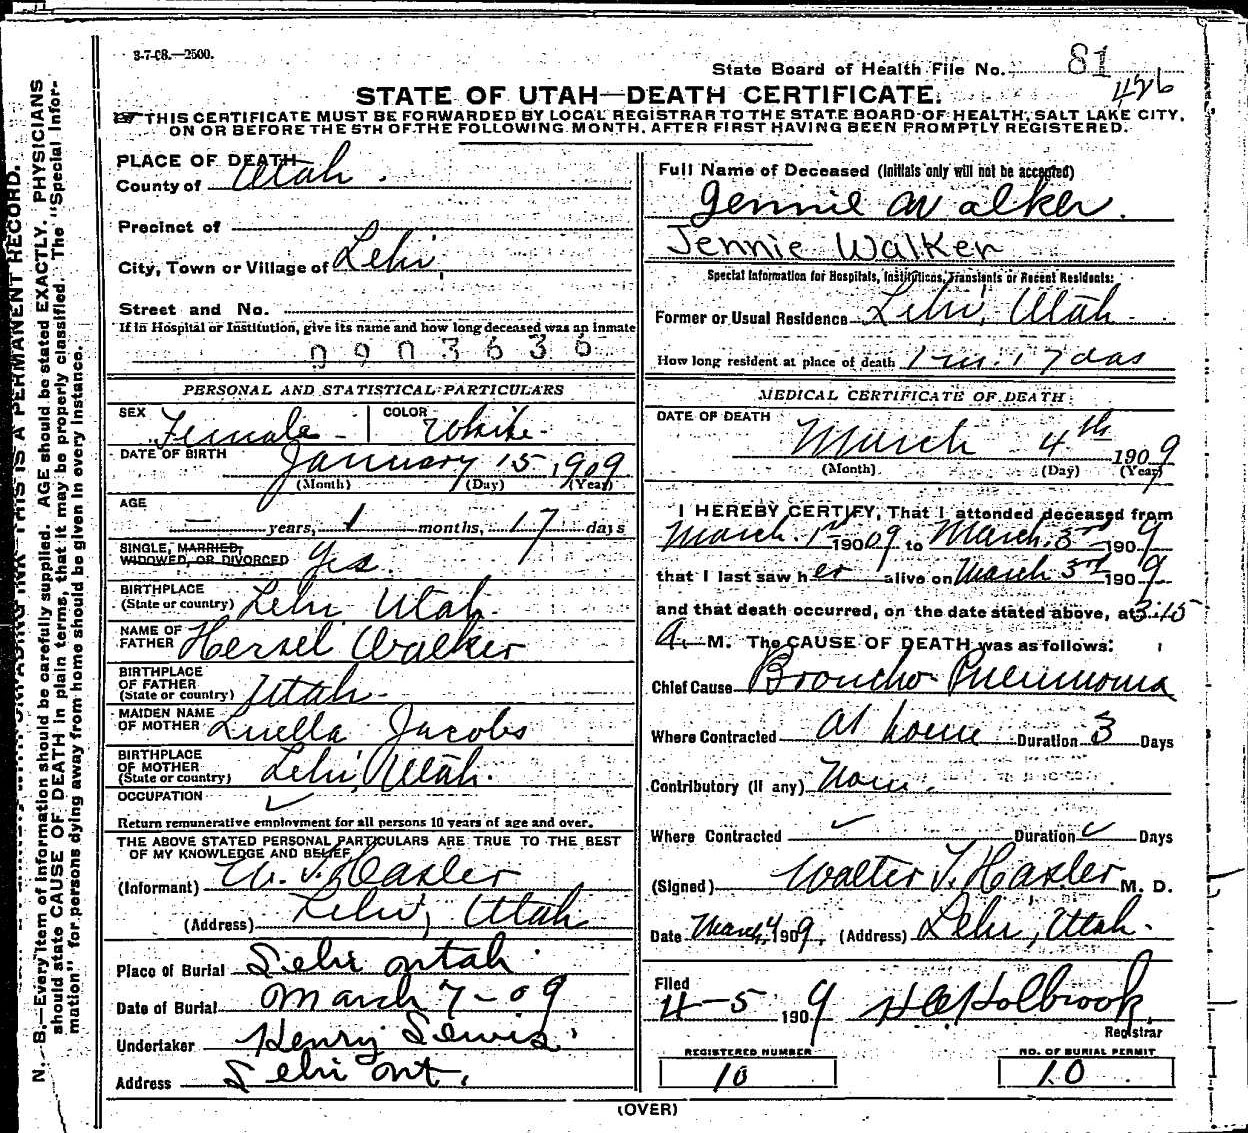 3-7-08.—2500.
State Board of Health File No. 81
426
STATE OF UTAH—DEATH CERTIFICATE.
THIS CERTIFICATE MUST BE FORWARDED BY LOCAL REGISTRAR TO THE STATE BOARD OF HEALTH, SALT LAKE CITY,
ON OR BEFORE THE 5TH OF THE FOLLOWING MONTH, AFTER FIRST HAVING BEEN PROMPTLY REGISTERED.
PLACE OF DEATH
County of Utah.
Precinct of
City, Town or Village of Lehi
Street and No.
If in Hospital or Institution, give its name and how long deceased was an inmate
0903636
PERSONAL AND STATISTICAL PARTICULARS
SEX Female COLOR White
DATE OF BIRTH January 15, 1909
(Month) (Day) (Year)
AGE
— years, 1 months, 17 days
SINGLE, MARRIED,
WIDOWED, OR DIVORCED Yes.
BIRTHPLACE
(State or country) Lehi Utah.
NAME OF
FATHER Hersel Walker
BIRTHPLACE
OF FATHER
(State or country) Utah
MAIDEN NAME
OF MOTHER Luella Jacobs
BIRTHPLACE
OF MOTHER
(State or country) Lehi, Utah.
OCCUPATION ✓
Return remunerative employment for all persons 10 years of age and over.
THE ABOVE STATED PERSONAL PARTICULARS ARE TRUE TO THE BEST
OF MY KNOWLEDGE AND BELIEF
(Informant) W. T. Hasler
(Address) Lehi, Utah
Place of Burial Lehi utah
Date of Burial March 7-09
Undertaker Henry Lewis
Address Lehi ut.
Full Name of Deceased (Initials only will not be accepted)
Jennie Walker.
Jennie Walker
Special Information for Hospitals, Institutions, Transients or Recent Residents:
Former or Usual Residence Lehi, Utah
How long resident at place of death 1 m. 17 das
MEDICAL CERTIFICATE OF DEATH
DATE OF DEATH
March 4th 1909
(Month) (Day) (Year)
I HEREBY CERTIFY, That I attended deceased from
March 1st 1909 to March 3rd 1909
that I last saw her alive on March 3rd 1909
and that death occurred, on the date stated above, at 3:15
A. M. The CAUSE OF DEATH was as follows:
Chief Cause Broncho-Pneumonia
Where Contracted at home Duration 3 Days
Contributory (if any) None.
Where Contracted ✓ Duration ✓ Days
(Signed) Walter T. Hasler M. D.
Date March 4, 1909. (Address) Lehi, Utah.
Filed
4-5 1909 Holbrook
Registrar
REGISTERED NUMBER
10
NO. OF BURIAL PERMIT
10
(OVER)
THIS IS A PERMANENT RECORD.
N. B.—Every item of information should be carefully supplied. AGE should be stated EXACTLY. PHYSICIANS
should state CAUSE OF DEATH in plain terms, that it may be properly classified. The "Special Infor-
mation" for persons dying away from home should be given in every instance.